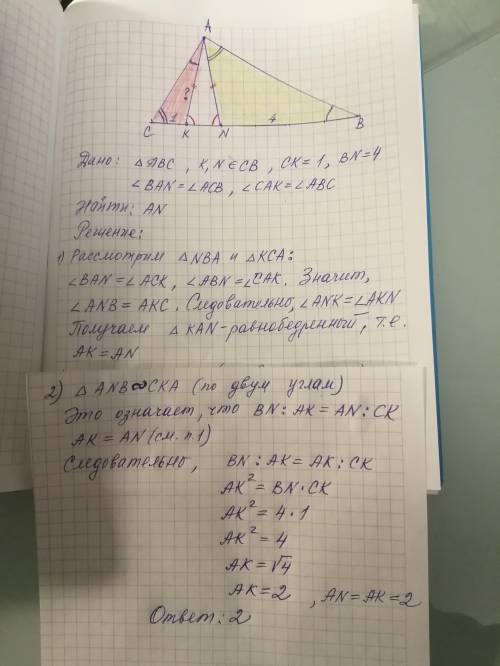 A
?
C 1 K N 4 B
Дано: △ABC, K,N∈CB, CK=1, BN=4
∠BAN=∠ACB, ∠CAK=∠ABC
Найти: AN
Решение:
1) Рассмотрим △NBA и △KCA:
∠BAN=∠ACK, ∠ABN=∠CAK. Значит,
∠ANB=AKC. Следовательно, ∠ANK=∠AKN
Получаем △KAN-равнобедренный, т.е.
AK=AN
2) △ANB∞CKA (по двум углам)
Это означает, что BN:AK=AN:CK
AK=AN (см. п.1)
Следовательно, BN:AK=AK:CK
AK²=BN·CK
AK²=4·1
AK²=4
AK=√4
AK=2, AN=AK=2
Ответ: 2